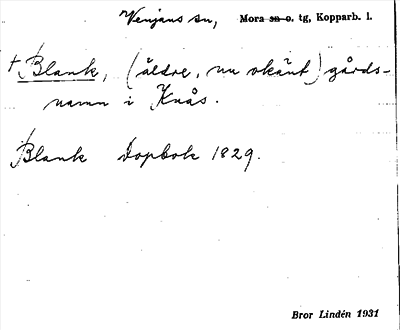 Venjans sn, Mora sn o. tg, Kopparb. l.
† Blank, (äldre, nu okänt) gårds-
namn i Knås.
Blank Dopbok 1829.
Bror Lindén 1931